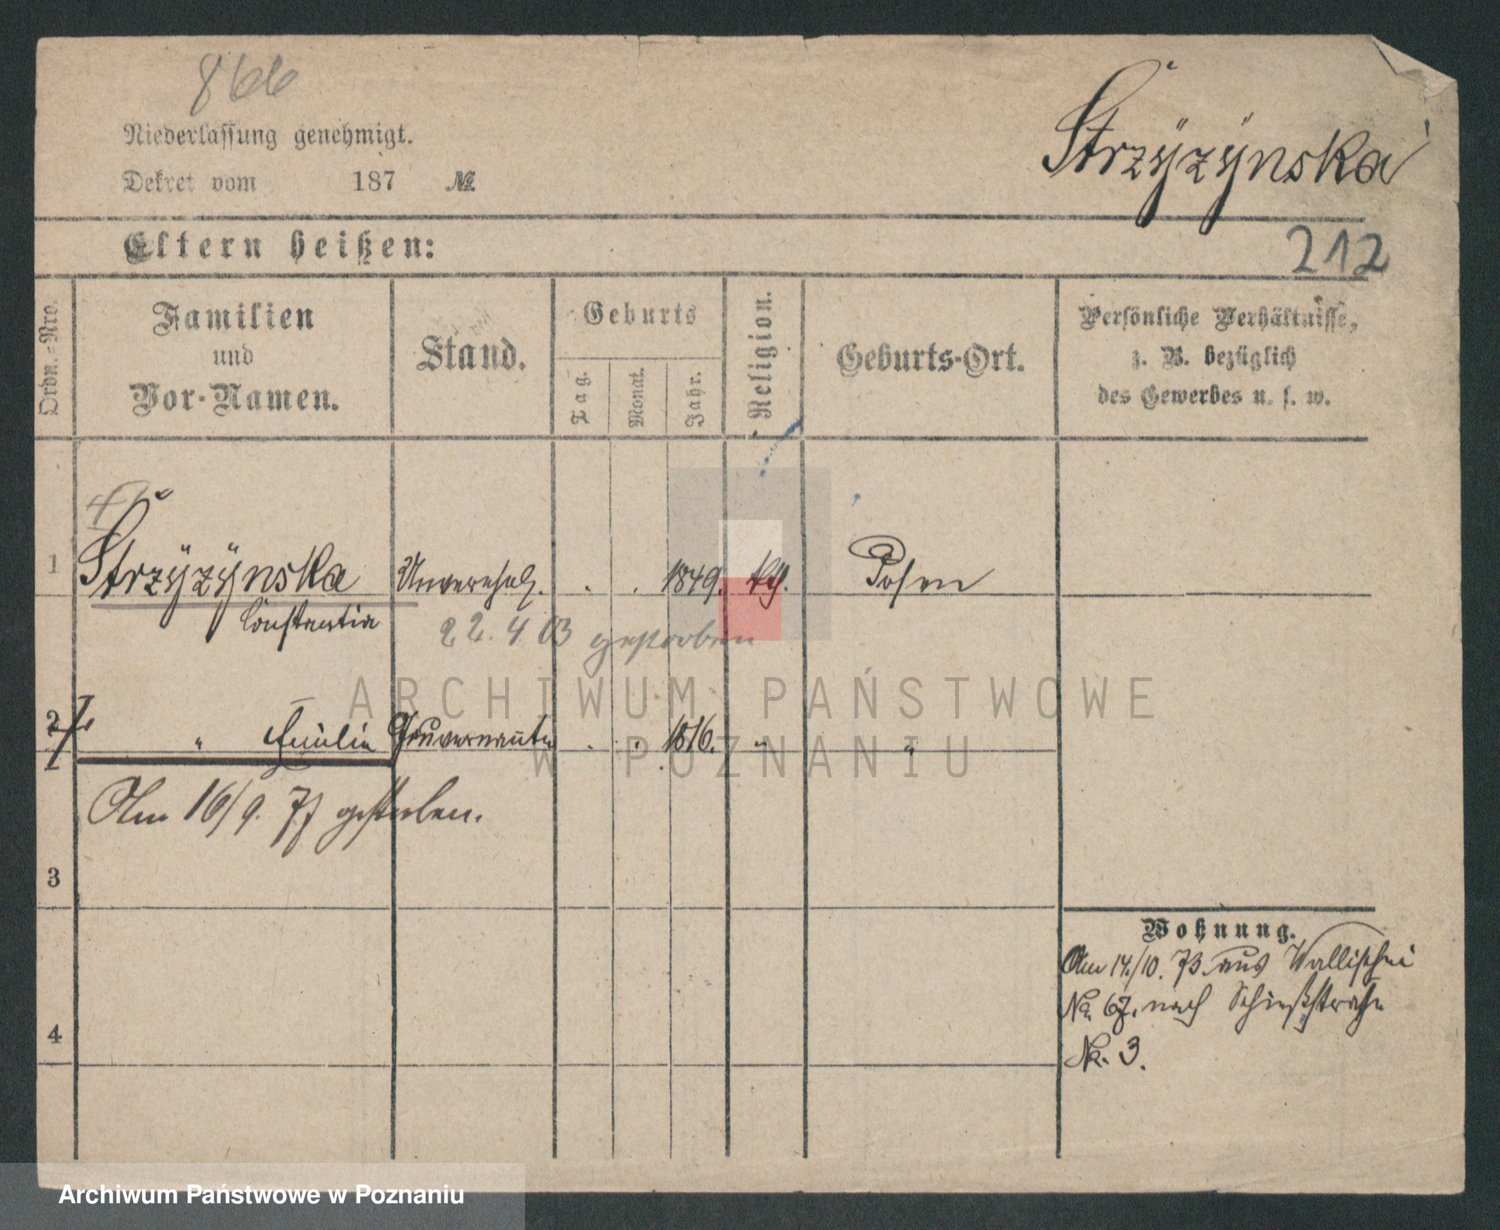 866
Niederlassung genehmigt.
Dekret vom 187 №
Strzyzynska
Eltern heißen:
212
Ordn.-Nro.
Familien
und
Vor-Namen.
Stand.
Geburts
Tag.
Monat.
Jahr.
Religion.
Geburts-Ort.
Persönliche Verhältnisse,
z. B. bezüglich
des Gewerbes u. s. w.
1 Strzyzynska Unverehel. . . 1849. kth. Posen
Constantia
22. 4 03 gestorben
ARCHIWUM PAŃSTWOWE
W POZNANIU
2 " Emilie Gouvernante . . 1816. " "
Am 16/9. 77 gestorben.
3
Wohnung.
Am 14./10. 73. aus Wallischei
No. 67. nach Schießstraße
No. 3.
4
Archiwum Państwowe w Poznaniu